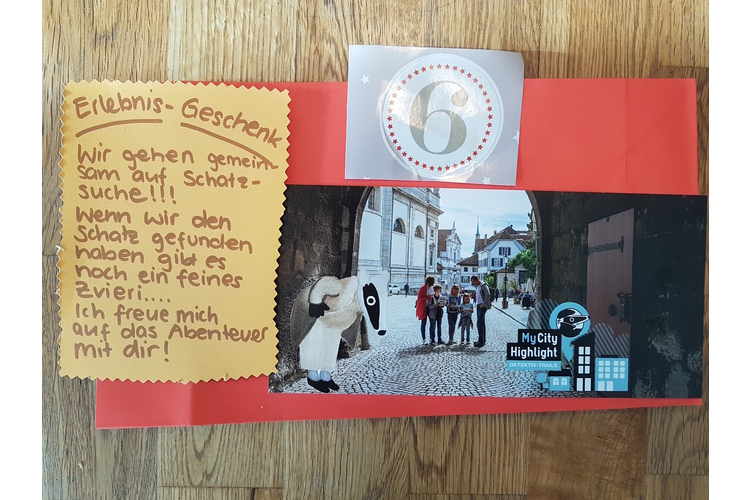 Erlebnis- Geschenk
Wir gehen gemein-
sam auf Schatz-
suche!!!
Wenn wir den
Schatz gefunden
haben gibt es
noch ein feines
Zvieri....
Ich freue mich
auf das Abenteuer
mit dir!
6
MyCity
Highlight
DETEKTIV-TRAILS